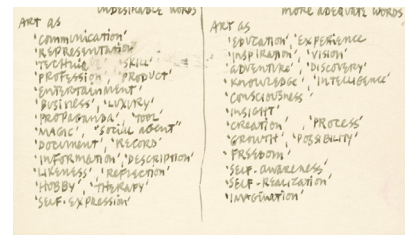 undesirable words
ART as
'communication'
'REPRESENTATION'
'TECHNIC', 'SKILL'
'PROFESSION', 'PRODUCT'
'ENTERTAINMENT'
'BUSINESS', 'LUXURY'
'PROPAGANDA', 'TOOL'
'MAGIC', "SOCIAL AGENT"
'DOCUMENT', 'RECORD'
'INFORMATION', 'DESCRIPTION'
'LIKENESS', 'REFLECTION'
'HOBBY', 'THERAPY'
'SELF-EXPRESSION'
MORE ADEQUATE WORDS
ART as
'EDUCATION', 'EXPERIENCE'
'INSPIRATION', 'VISION'
'ADVENTURE', 'DISCOVERY'
'KNOWLEDGE', 'INTELLIGENCE'
'CONSCIOUSNESS'
'INSIGHT'
'CREATION', 'PROCESS'
'GROWTH', 'POSSIBILITY'
'FREEDOM'
'SELF-AWARENESS'
'SELF-REALIZATION'
'IMAGINATION'